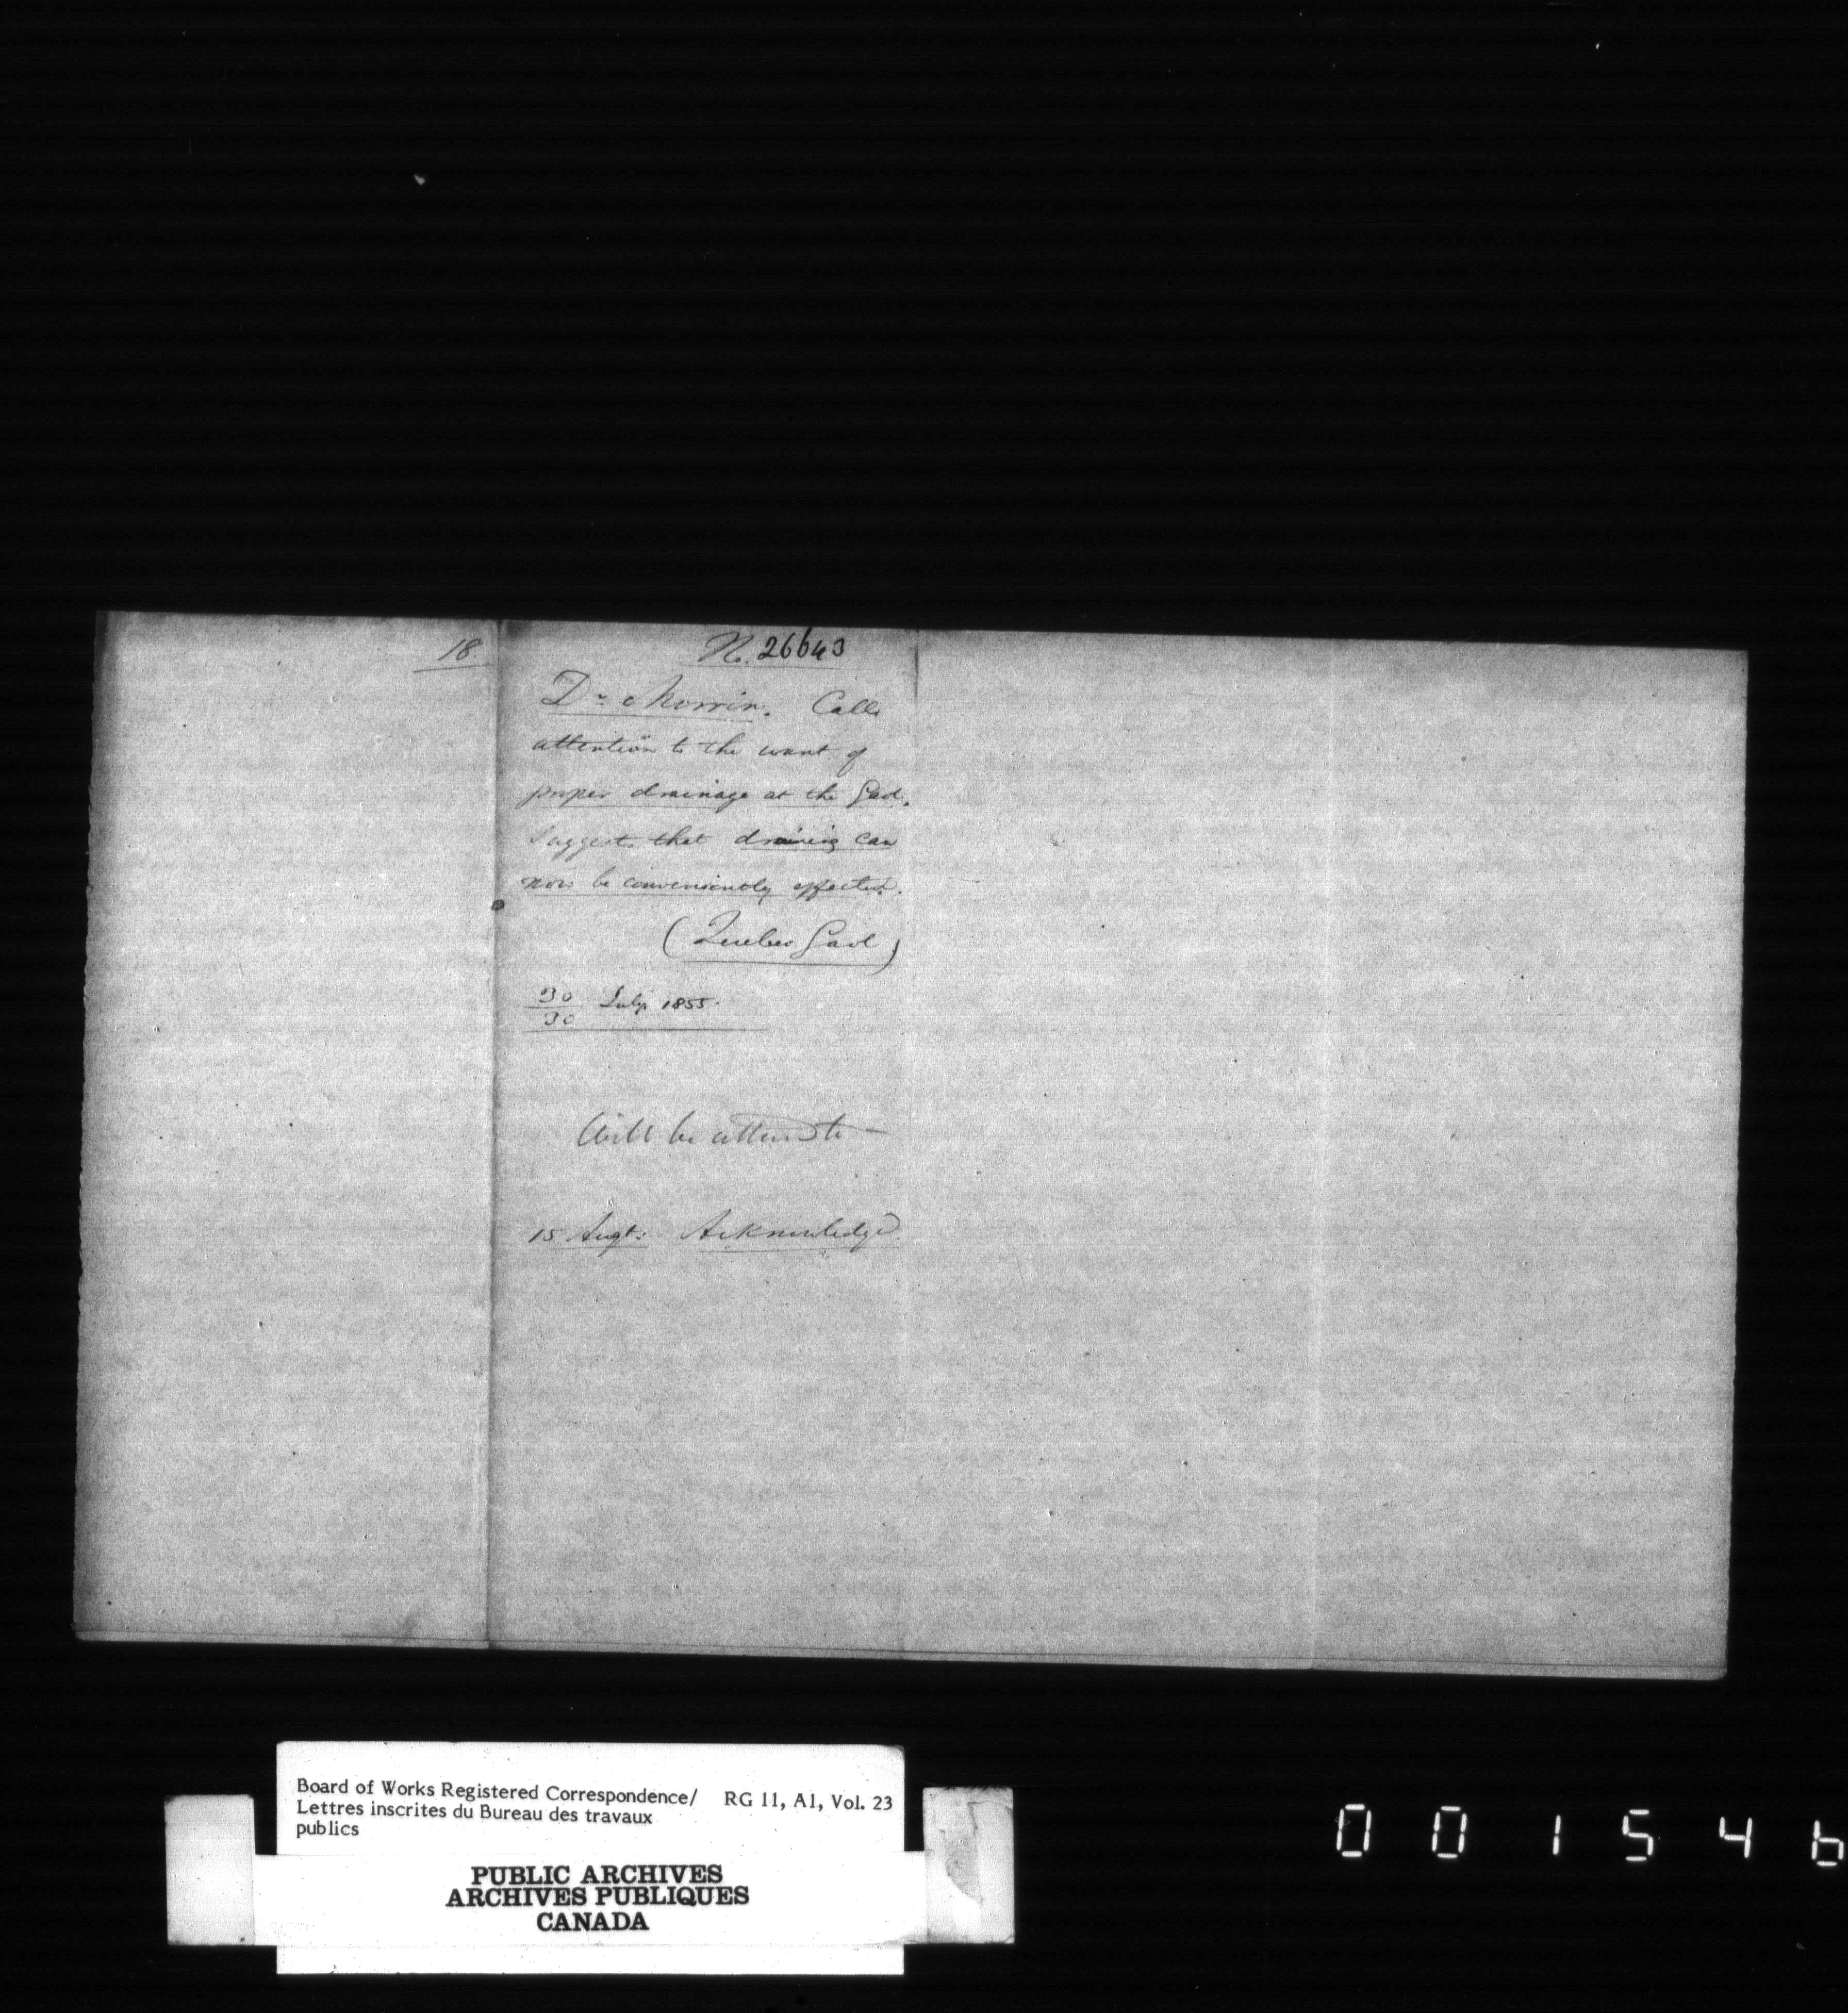 18
No. 26643
Dr Morrin. Calls
attention to the want of
proper drainage at the Gaol.
Suggests that draining can
now be conveniently effected.
(Quebec Gaol)
30/30 July 1855.
Will be attend to —
15 Augt: Acknowledged.
Board of Works Registered Correspondence/ RG 11, A1, Vol. 23
Lettres inscrites du Bureau des travaux
publics
PUBLIC ARCHIVES
ARCHIVES PUBLIQUES
CANADA
001546